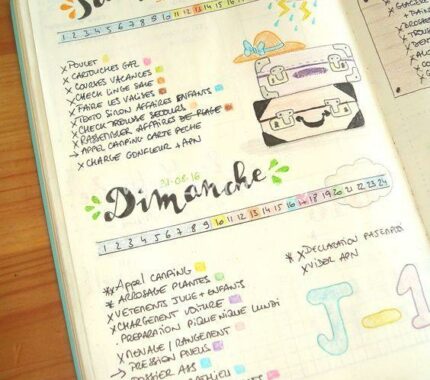 1 2 3 4 5 6 7 8 9 10 11 12 13 14 15 16 17
x POULET
x CARTOUCHES GAZ
x COURSES VACANCES
x CHECK LINGE SALE
x FAIRE LES VALISES
x TOTO SIMON AFFAIRES ENFANTS
x CHECK TROUSSE SECOURS
x RASSEMBLER AFFAIRES DE PLAGE
→ APPEL CAMPING CARTE PECHE
x CHARGE GONFLEUR + APN
21-08-16
Dimanche
1 2 3 4 5 6 7 8 9 10 11 12 13 14 15 16 17 18 19 20 21 22 23 24
*x APPEL CAMPING
* ARROSAGE PLANTES
x VETEMENTS JULIE + ENFANTS
x CHARGEMENT VOITURE
. PREPARATION PIQUE NIQUE LUNDI
x MENAGE / RANGEMENT
→ PRESSION PNEUS
DOSSIER
MATHIEU
* x DECLARATION
x VIDER APN
J-1